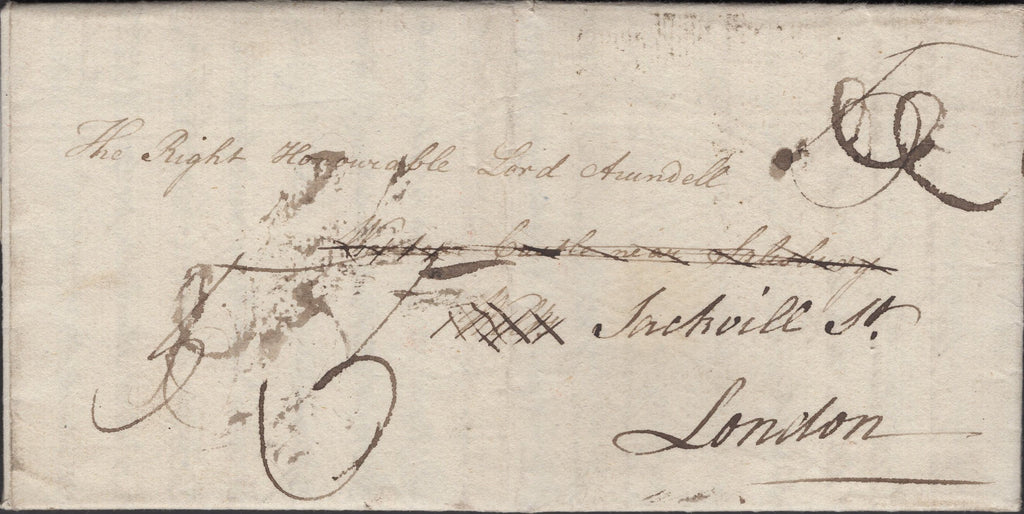 The Right Honourable Lord Arundell
Castle near Salisbury
Sackvill St.
London